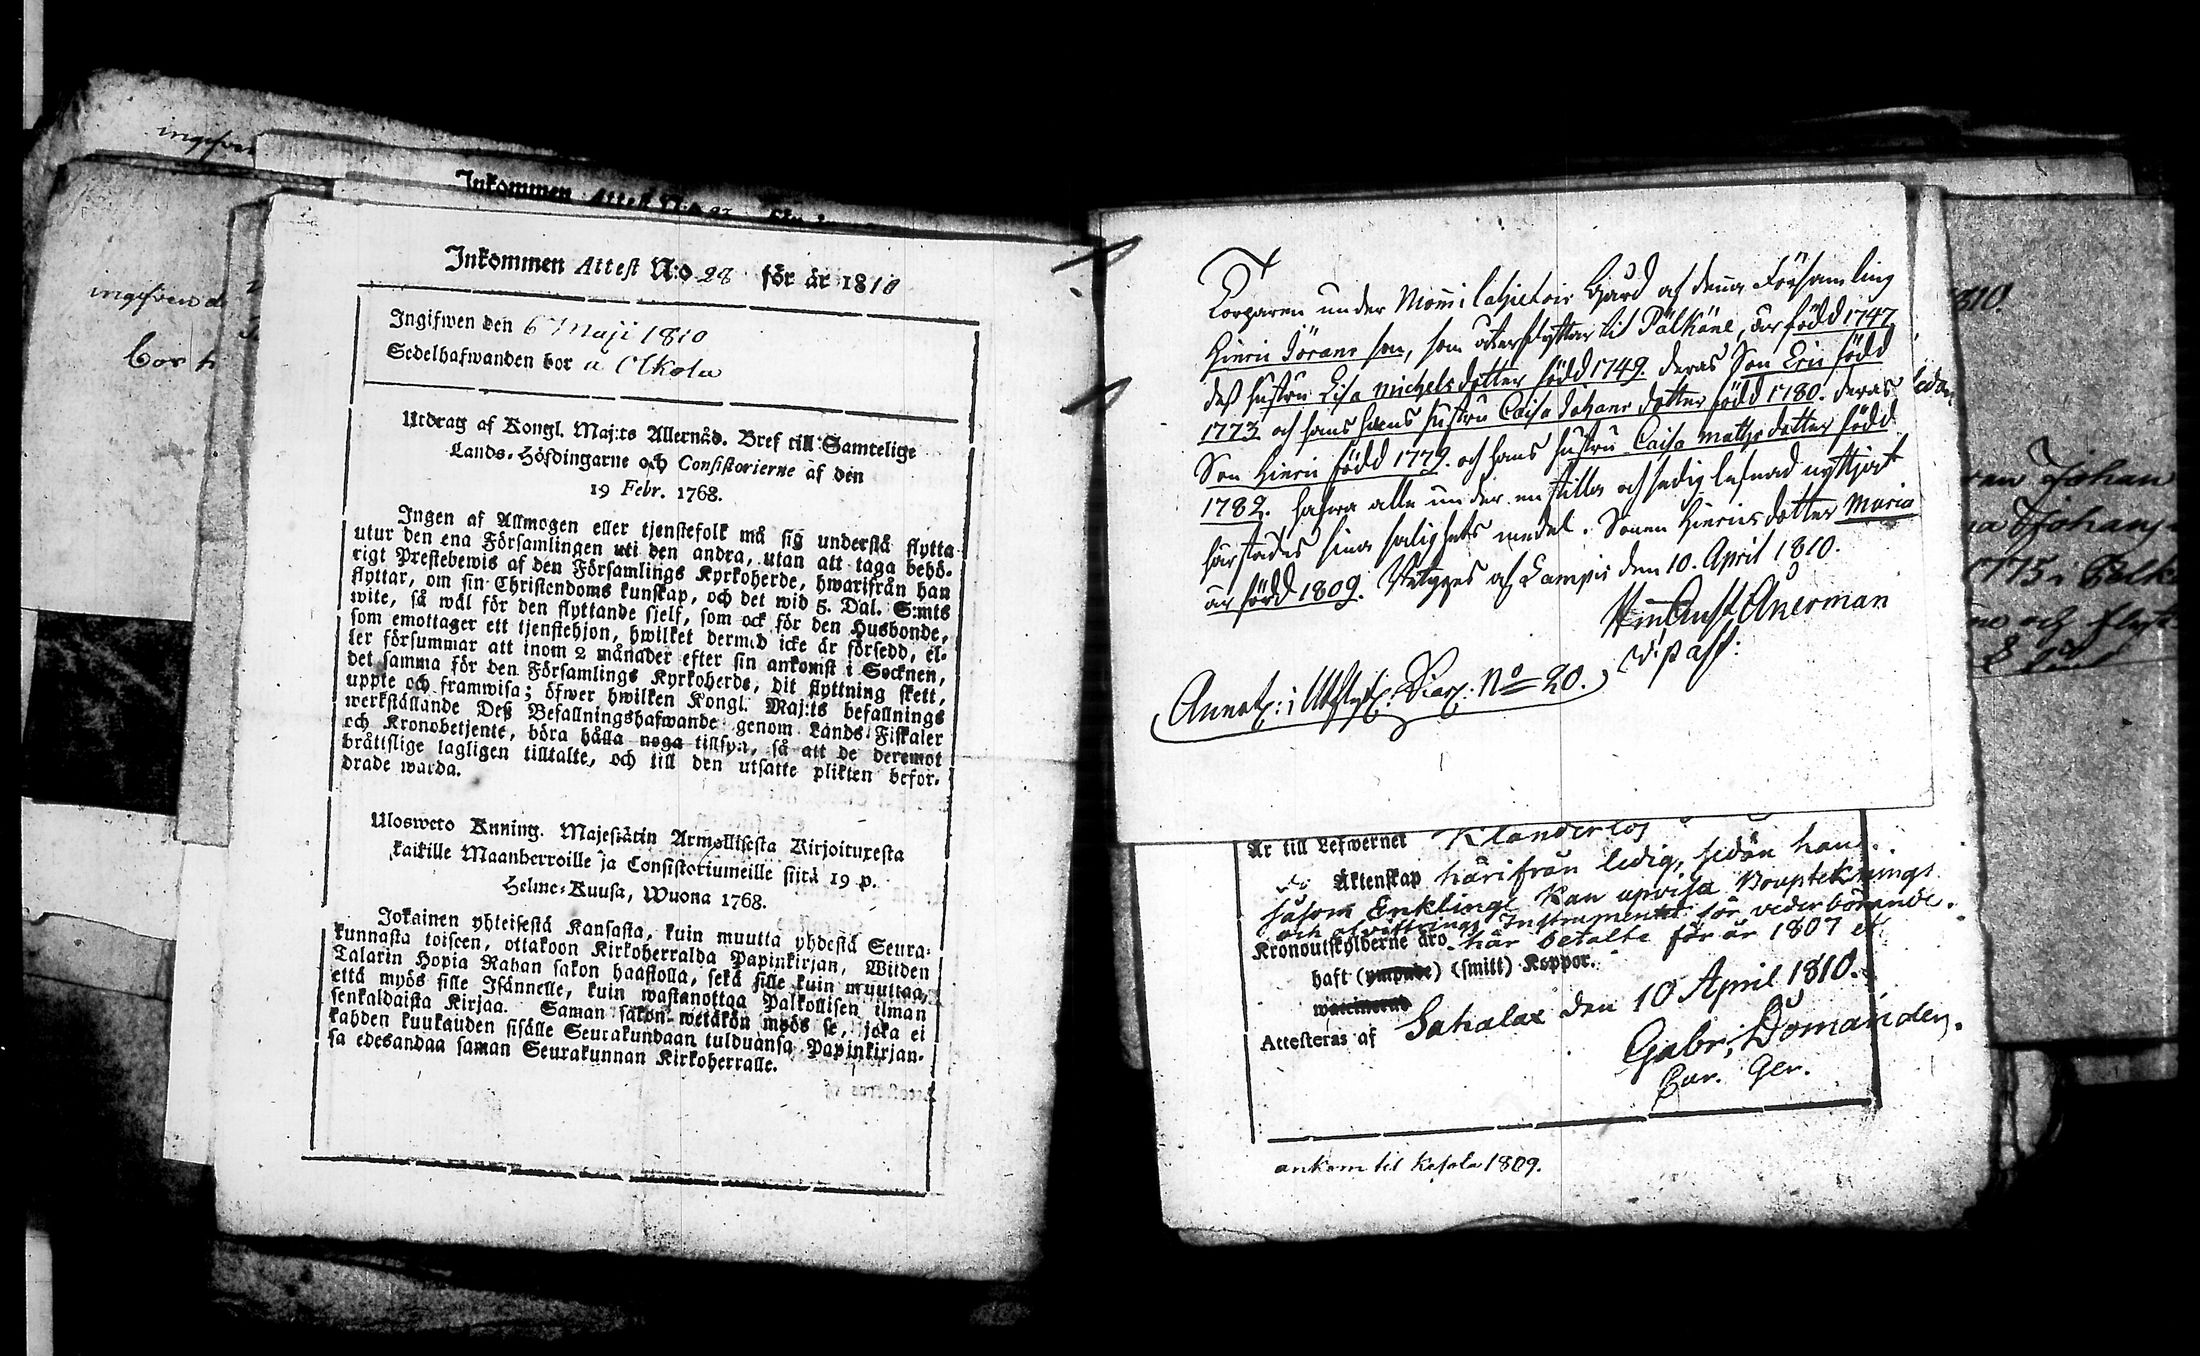 ingifven
Inkommen Attest N:o
ingifven d
bor h
Inkommen Attest N:o 28 för år 1810
Ingifwen den 6 Maji 1810
Sedelhafwanden bor a Olkola
Utdrag af Kongl. Maj:ts Allernåd. Bref till Samtelige
Lands-Höfdingarne och Consistorierne af den
19 Febr. 1768.
Ingen af Allmogen eller tjenstefolk må sig understå flytta
utur den ena Församlingen uti den andra, utan att taga behö-
rigt Prestebewis af den Församlings Kyrkoherde, hwarifrån han
flyttar, om sin Christendoms kunskap, och det wid 5. Dal. S:mts
wite, så wäl för den flyttande sjelf, som ock för den Husbonde,
som emottager ett tjenstehjon, hwilket dermed icke är försedd, el-
ler försummar att inom 2 månader efter sin ankomst i Socknen,
det samma för den Församlings Kyrkoherde, dit flyttning skett,
uppte och framwisa; öfwer hwilken Kongl. Maj:ts befallnings
werkställande Deß Befallningshafwande genom Lands Fiskaler
och Kronobetjente, böra hålla noga tillsyn, så att de deremot
bråttslige lagligen tilltalte, och till den utsatte plikten befor-
drade warda.
Uloswetо Kuning. Majestätin Armollisesta Kirjoituxesta
kaikille Maanherroille ja Consistoriumeille siitä 19 p.
Helme-Kuusa, Wuona 1768.
Jokainen yhteisestä Kansasta, kuin muutta yhdestä Seura-
kunnasta toiseen, ottakoon Kirkoherralda Papinkirjan, Wiiden
Talarin Hopia Rahan sakon haastolla, sekä sille kuin muuttaa,
että myös sille Isännelle, kuin wastanottaa Palkollisen ilman
senkaldaista Kirjaa. Saman sakon wetäkön myös se, joka ei
kahden kuukauden sisälle Seurakundaan tulduansa Papinkirjan-
sa edesandaa saman Seurakunnan Kirkoherralle.
Torparen under Mommila Gård af denna Församling
Hinric Jörans son, som återflyttar til Pälkäne, är född 1747
deß hustru Lisa Michelsdotter född 1749. deras Son Eric född
1773 och hans hustru Caisa Johans dotter född 1780. deras
Son Hinric född 1779. och hans hustru Caisa Matts dotter född
1782. hafwa alle under en stilla och sedig lefnad nyttjat
härstädes sina salighets medel. Sonen Hinrics dotter Maria
är född 1809. Betygas af Lampis den 10. April 1810.
Akerman
Annot: i Utflytt. Diar: No 20.
Är till Lefwernet Klanderlös
Äktenskap härifrån ledig, sedan han
såsom Enkling kan upvisa Bouptecknings
och afvittrings Instrument för vederbörande.
Kronoutskylderne äro här betalte för år 1807 et
haft (smitt) Koppor.
Attesteras af Sahalax den 10 April 1810.
Gabr. Domander.
Cur. Ger.
ankom til Kesola 1809.
1810.
Johan